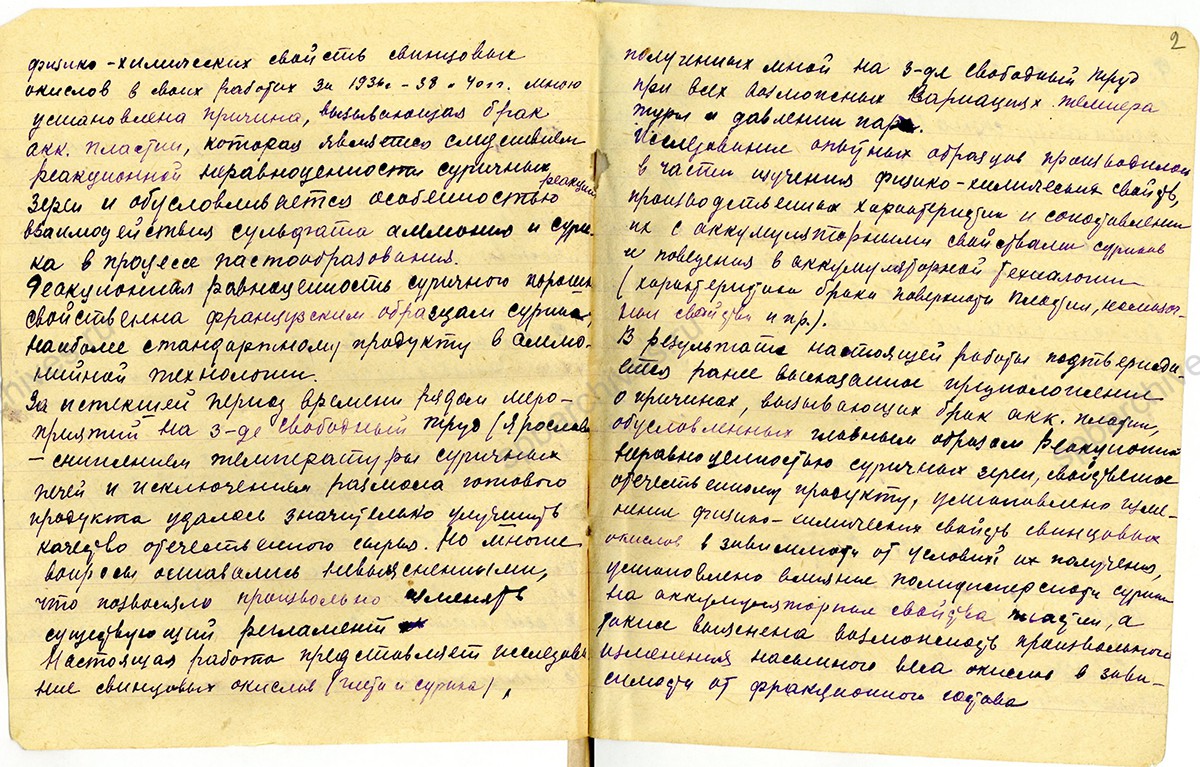 физико-химических свойств свинцовых
окислов в своих работах за 1936г.-38 и 40гг. мною
установлена причина, вызывающая брак
акк. пластин, которая является следствием
реакционной неравноценности суричных
зерен и обусловливается особенностью реакции
взаимодействия сульфата аммония и сури-
ка в процессе пастообразования.
Реакционная равноценность суричного порошка
свойственна французским образцам сурика,
наиболее стандартному продукту в аммо-
нийной технологии.
За истекший период времени рядом меро-
приятий на з-де свободный труд (Ярославль
- снижением температуры суричных
печей и исключением размола готового
продукта удалось значительно улучшить
качество отечественного сырья. Но многие
вопросы оставались невыясненными,
что позволяло произвольно изменять
существующий регламент
Настоящая работа представляет исследова-
ние свинцовых окислов (глета и сурика),
2
полученных мной на з-де свободный труд
при всех возможных вариациях темпера
туры и давлении пара.
Исследование опытных образцов производилось
в части изучения физико-химических свойств,
производственных характеристик и сопоставлении
их с аккумуляторными свойствами суриков
и поведения в аккумуляторной технологии
(характеристика брака поверхности пластин,
ных свойств и пр.).
В результате настоящей работы подтвержда-
ется ранее высказанное предположение
о причинах, вызывающих брак акк. пластин,
обусловленных главным образом реакционной
неравноценностью суричных зерен, свойственное
отечественному продукту, установлено изме-
нение физико-химических свойств свинцовых
окислов в зависимости от условий их получения,
установлено влияние полидисперсности сурика
на аккумуляторные свойства пластин, а
также выяснена возможность произвольного
изменения насыпного веса окислов в зави-
симости от фракционного состава